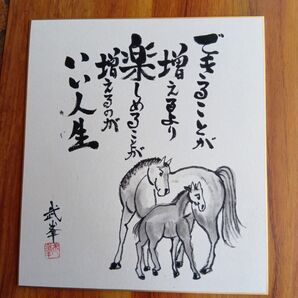 できることが
増えるより
楽しめることが
増えるのが
いい人生
武峯